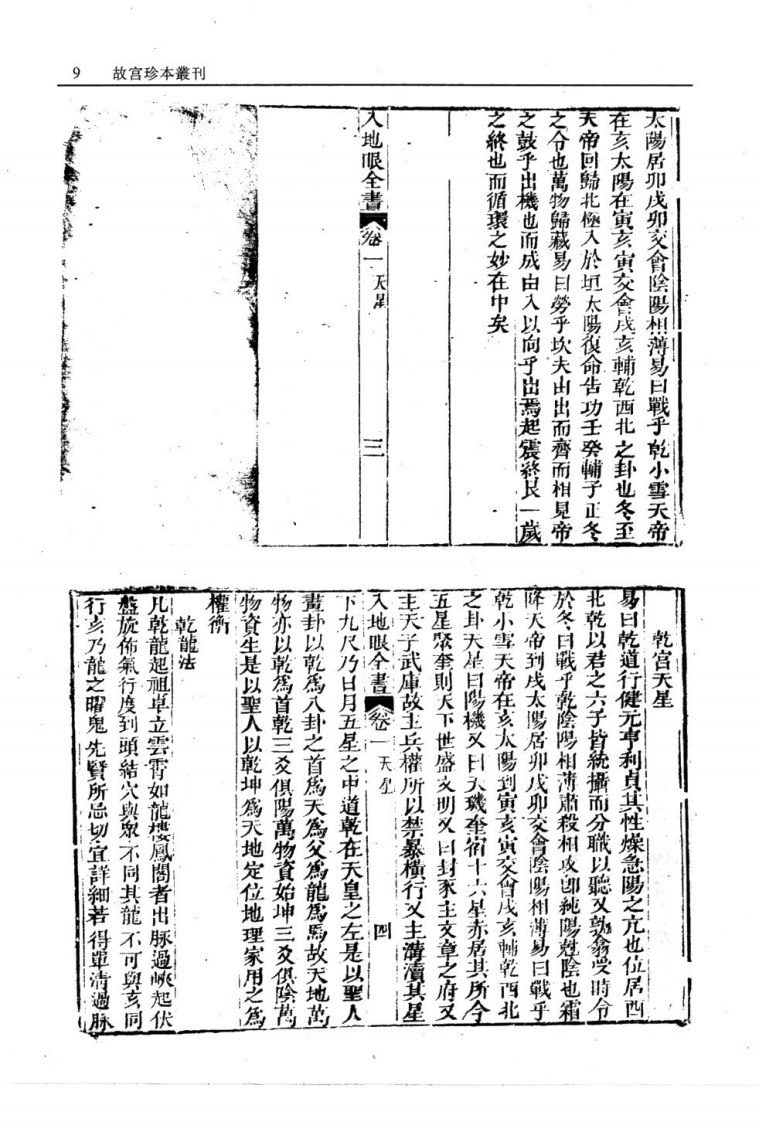 9 故宫珍本叢刊
太陽居卯戌卯交會陰陽相薄易曰戰乎乾小雪天帝
在亥太陽在寅亥寅交會戌亥輔乾西北之卦也冬至
天帝回歸北極入於垣太陽復命告功壬癸輔子正冬
之令也萬物歸藏易曰勞乎坎夫由出而齊而相見帝
之鼓乎出機也而成由入以向乎出焉起震終艮一歲
之終也而循環之妙在中矣
入地眼全書 卷一 天星 三
乾宮天星
易曰乾道行健元亨利貞其性燥急陽之亢也位居西
北乾以君之六子皆統攝而分職以聽又孰翕受時令
於冬曰戰乎乾陰陽相薄肅殺相攻卽純陽尅陰也霜
降天帝到戌太陽居卯戌卯交會陰陽相薄易曰戰乎
乾小雪天帝在亥太陽到寅亥寅交會戌亥輔乾西北
之卦天星曰陽機又曰天璣奎宿十六星亦居其所今
五星聚奎則天下世盛文明又曰封豕主文章之府又
主天子武庫故主兵權所以禁暴橫行又主溝瀆其星
入地眼全書 卷一 天星 四
下九尺乃日月五星之中道乾在天皇之左是以聖人
畫卦以乾爲八卦之首爲天爲父爲龍爲馬故天地萬
物亦以乾爲首乾三爻俱陽萬物資始坤三爻俱陰萬
物資生是以聖人以乾坤爲天地定位地理家用之爲
權衡
乾龍法
凡乾龍起祖卓立雲霄如龍樓鳳閣者出脉過峽起伏
盤旋佈氣行度到頭結穴與衆不同其龍不可與亥同
行亥乃龍之曜鬼先賢所忌切宜詳細若得單清過脉